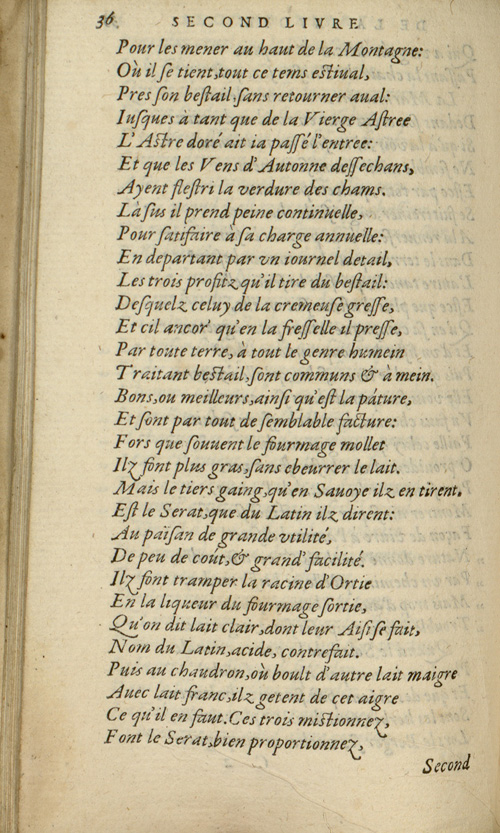 36 SECOND LIVRE
Pour les mener au haut de la Montagne:
Où il se tient, tout ce tems estiual,
Pres son bestail, sans retourner aual:
Iusques à tant que de la Vierge Astree
L'Astre doré ait ia passé l'entree:
Et que les Vens d'Autonne dessechans,
Ayent flestri la verdure des chams.
Là sus il prend peine continuelle,
Pour satifaire à sa charge annuelle:
En departant par vn iournel detail,
Les trois profitz qu'il tire du bestail:
Desquelz celuy de la cremeuse gresse,
Et cil ancor qu'en la fresselle il presse,
Par toute terre, à tout le genre humein
Traitant bestail, sont communs & à mein.
Bons, ou meilleurs, ainsi qu'est la páture,
Et sont par tout de semblable facture:
Fors que souuent le fourmage mollet
Ilz font plus gras, sans ebeurrer le lait.
Mais le tiers gaing, qu'en Sauoye ilz en tirent,
Est le Serat, que du Latin ilz dirent:
Au païsan de grande vtilité,
De peu de cout, & grand' facilité.
Ilz font tramper la racine d'Ortie
En la liqueur du fourmage sortie,
Qu'on dit lait clair, dont leur Aisi se fait,
Nom du Latin, acide, contrefait.
Puis au chaudron, où boult d'autre lait maigre
Auec lait franc, ilz getent de cet aigre
Ce qu'il en faut. Ces trois mistionnez,
Font le Serat, bien proportionnez,
Second